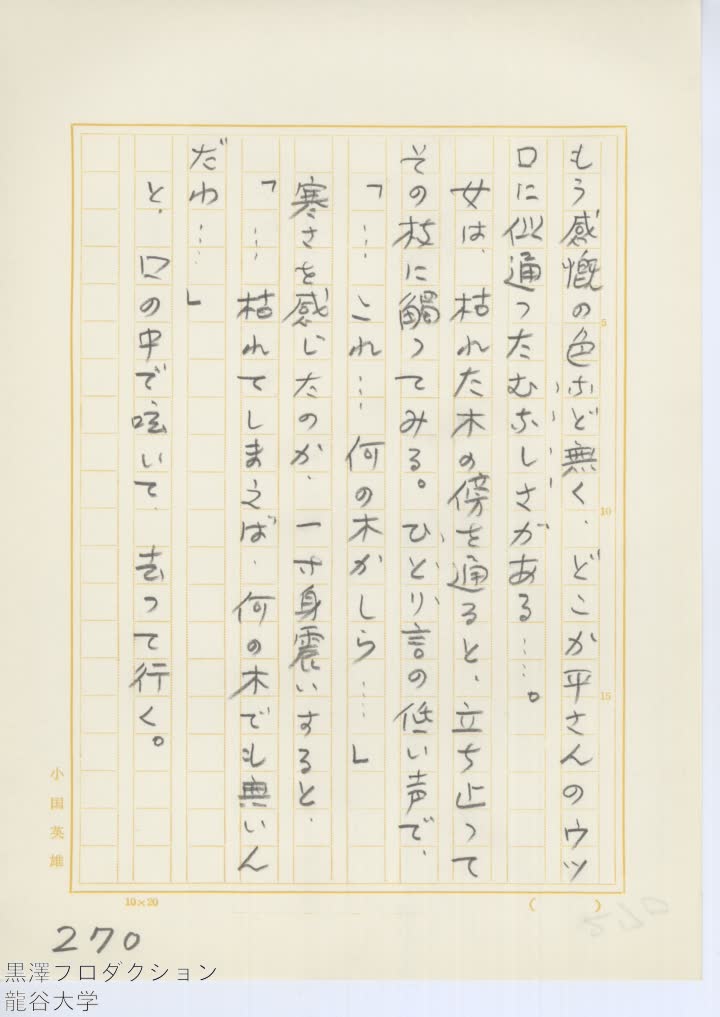 もう感慨の色など無く、どこか平さんのウツ
ロに似通ったむなしさがある……。
女は、枯れた木の傍を通ると、立ち止って
その枝に觸ってみる。ひとり言の低い声で、
「… これ… 何の木かしら……」
寒さを感じたのか、一寸身震いすると、
「… 枯れてしまえば、何の木でも無いん
だわ……」
と、口の中で呟いて、去って行く。
5
10
15
小国英雄
10×20
(　　)
270
黒澤プロダクション
龍谷大学